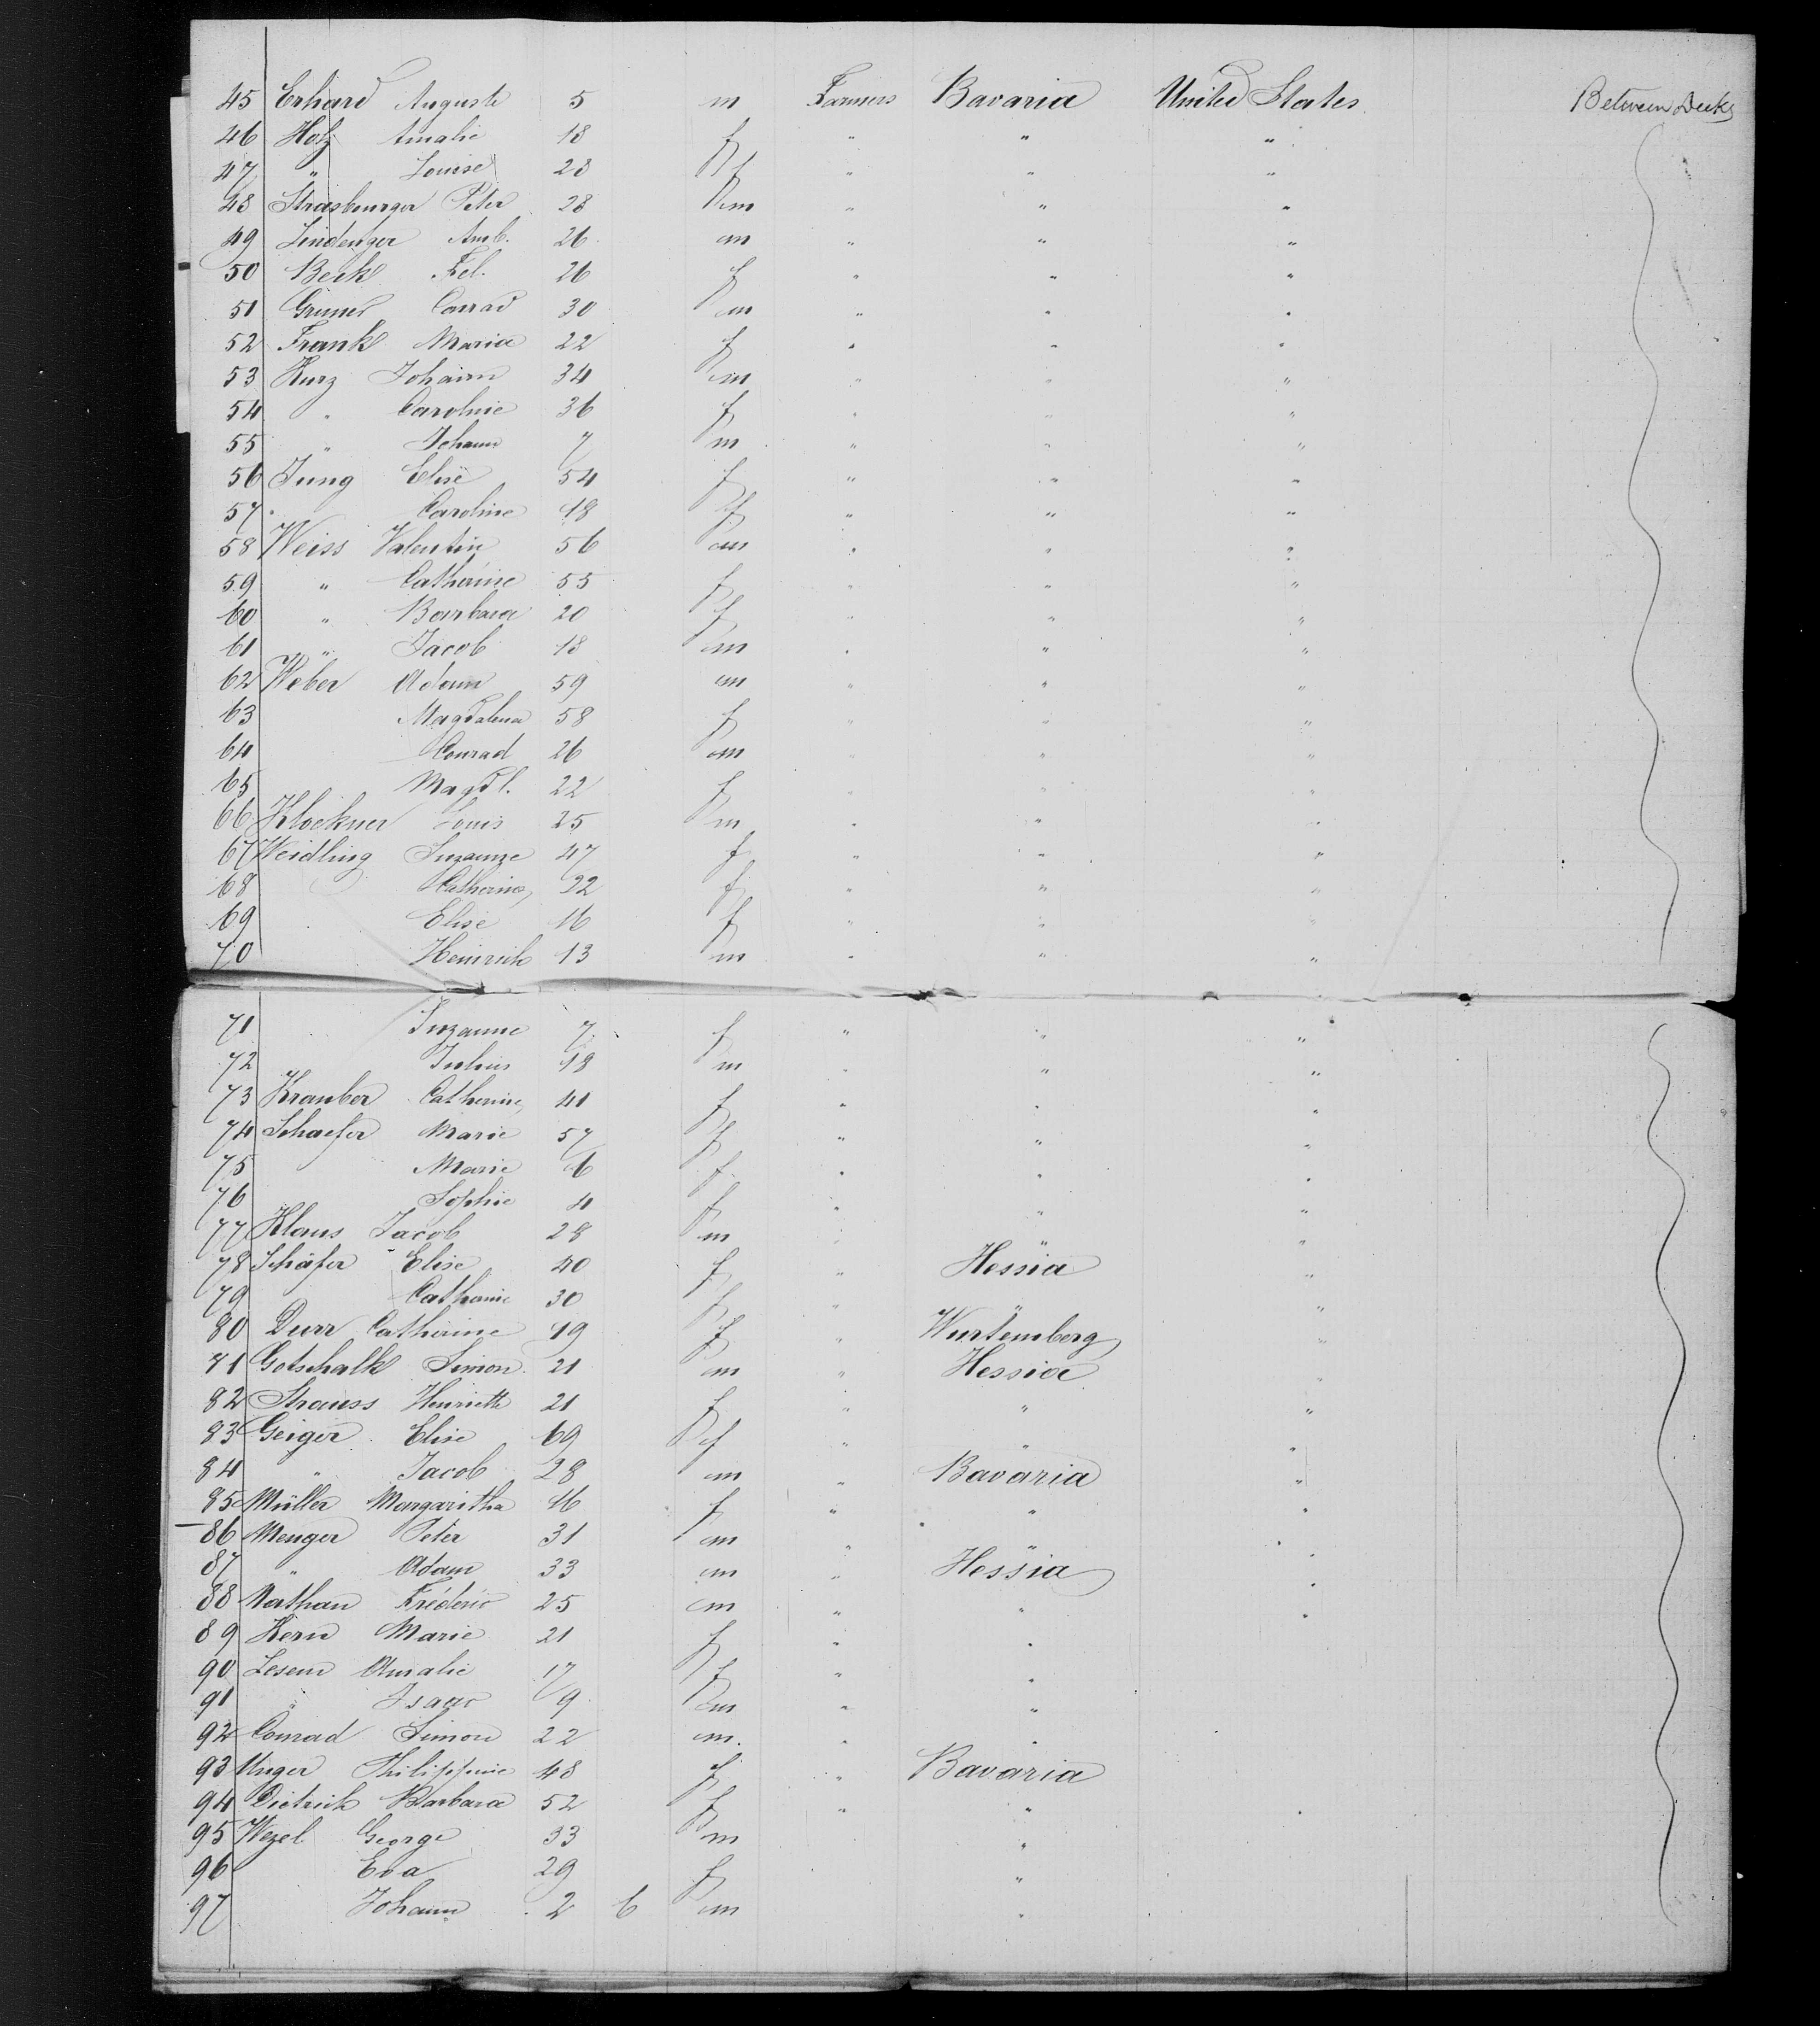 45 Erhard Auguste 5 m Farmers Bavaria United States Between Decks
46 Holz Amalie 18 f " " "
47 " Louise 23 f " " "
48 Strasburger Peter 28 m " " "
49 Amb. 26 m " " "
50 Beck Fel. 26 f " " "
51 Conrad 30 m " " "
52 Frank Maria 22 f " " "
53 Kurz Johann 34 m " " "
54 " Caroline 36 f " " "
55 " Johann 7 m " " "
56 Jung Elise 54 f " " "
57 " Caroline 18 f " " "
58 Weiss Valentin 56 m " " "
59 " Catherine 55 f " " "
60 " Barbara 20 f " " "
61 " Jacob 18 m " " "
62 Weber Adam 59 m " " "
63 Magdalena 58 f " " "
64 Conrad 26 m " " "
65 Magdl. 22 f " " "
66 Klockner Louis 25 m " " "
67 Weidling Suzanne 47 f " " "
68 Catherine 22 f " " "
69 Elise 16 f " " "
70 Heinrich 13 m " " "
71 Suzanne 7 f " " "
72 Julius 18 m " " "
73 Krauber Catherine 41 f " " "
74 Schaefer Marie 57 f " " "
75 Marie 6 f " " "
76 Sophie 4 f " " "
77 Klaus Jacob 28 m " " "
78 Schäfer Elise 40 f " Hessia "
79 Catherine 30 f " " "
80 Durr Catherine 19 f " Wurtemberg "
71 Gotschalk Simon 21 m " Hessia "
82 Strauss Henriette 21 f " " "
83 Geiger Elise 69 f " " "
84 " Jacob 28 m " Bavaria "
85 Müller Margaritha 16 f " " "
86 Menger Peter 31 m " " "
87 " Adam 33 m " Hessia "
88 Nathan Fréderic 25 m " " "
89 Kern Marie 21 f " "
90 Lesem Amalie 17 f " "
91 " Isaac 9 m " "
92 Conrad Simon 22 m. " "
93 Unger Philippine 48 f " Bavaria
94 Dietrich Barbara 52 f " "
95 Wezel George 33 m "
96 Eva 29 f "
97 Johann 2 6 m "